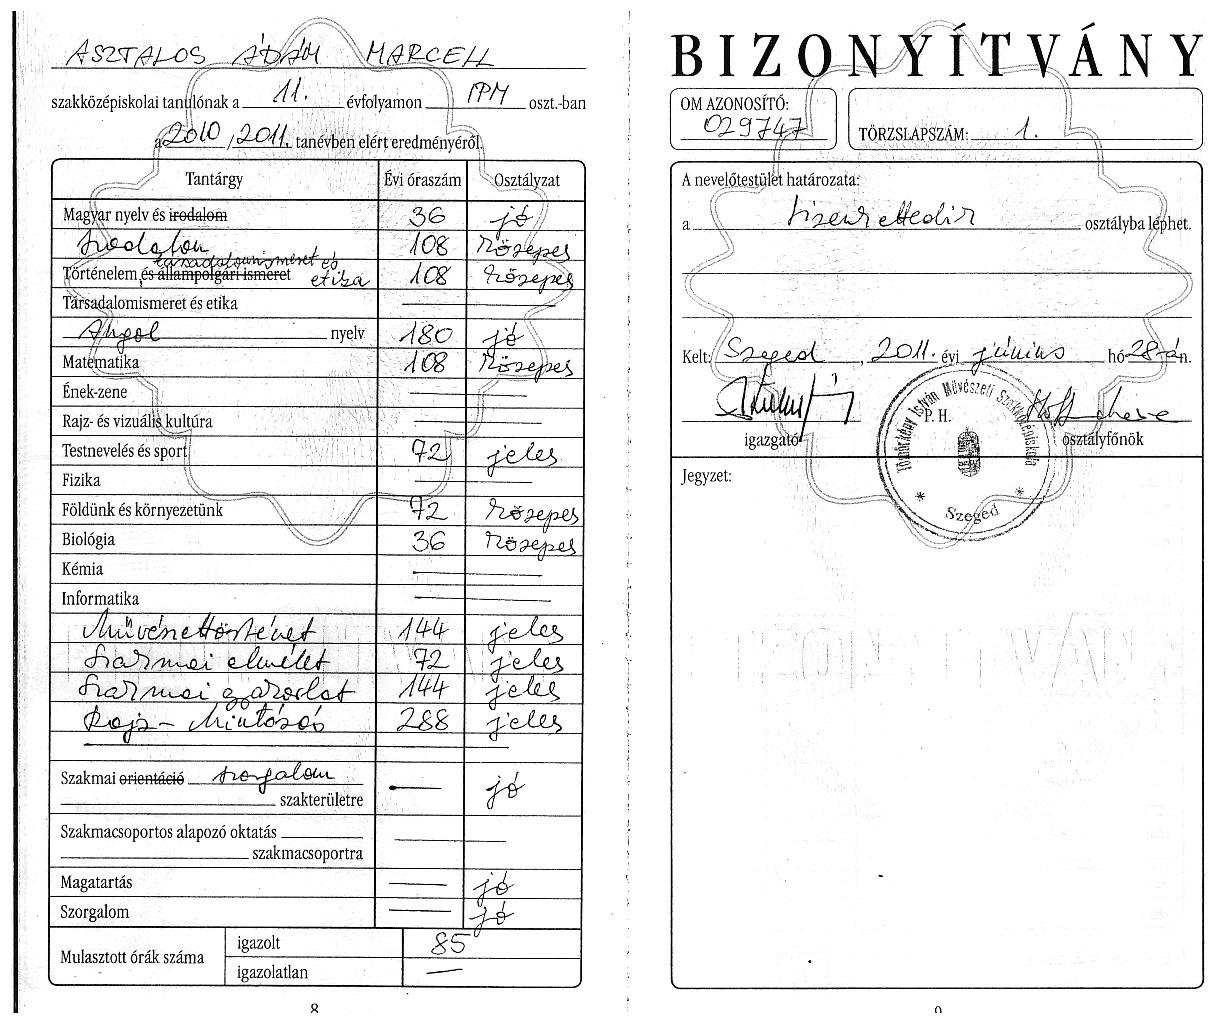 ASZTALOS ÁDÁM MARCELL
szakközépiskolai tanulónak a 11. évfolyamon IPM oszt.-ban
a 2010/2011. tanévben elért eredményéről.
Tantárgy Évi óraszám Osztályzat
Magyar nyelv és irodalom 36 jó
Irodalom 108 közepes
társadalomismeret és
Történelem és állampolgári ismeret etika 108 közepes
Társadalomismeret és etika
Angol nyelv 180 jó
Matematika 108 közepes
Ének-zene
Rajz- és vizuális kultúra
Testnevelés és sport 72 jeles
Fizika
Földünk és környezetünk 72 közepes
Biológia 36 közepes
Kémia
Informatika
Művészettörténet 144 jeles
Szakmai elmélet 72 jeles
Szakmai gyakorlat 144 jeles
Rajz - Mintázás 288 jeles
Szakmai orientáció szorgalom jó
szakterületre
Szakmacsoportos alapozó oktatás
szakmacsoportra
Magatartás jó
Szorgalom jó
Mulasztott órák száma igazolt 85
igazolatlan
8
BIZONYÍTVÁNY
OM AZONOSÍTÓ:
029747
TÖRZSLAPSZÁM: 1.
A nevelőtestület határozata:
a tizenkettedik osztályba léphet.
Kelt: Szeged, 2011. évi június hó 28-án.
P. H.
igazgató osztályfőnök
Tömörkény István Művészeti Szakközépiskola
* Szeged *
Jegyzet:
9